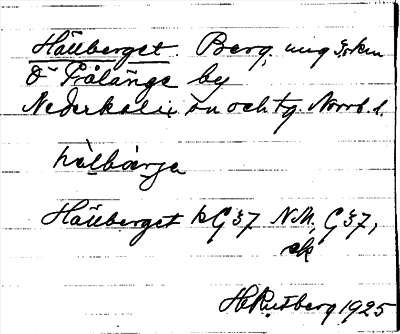 Hällberget. Berg, ung 3,5 km
Ö Prålänge by
Nederkalix sn och tg. Norrb. l.
hälbærje
Hällberget kG37 NM, G37,
ek
H Rutberg 1925